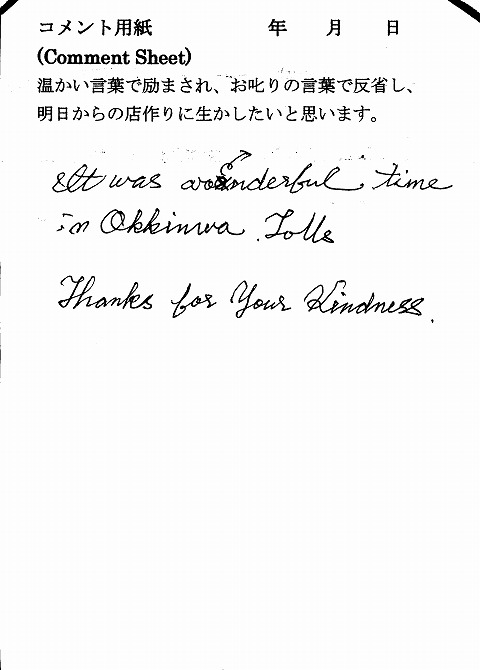 コメント用紙 年 月 日
(Comment Sheet)
温かい言葉で励まされ、お叱りの言葉で反省し、
明日からの店作りに生かしたいと思います。
It was wonderful time
in Okkinwa
Thanks for Your Kindness.